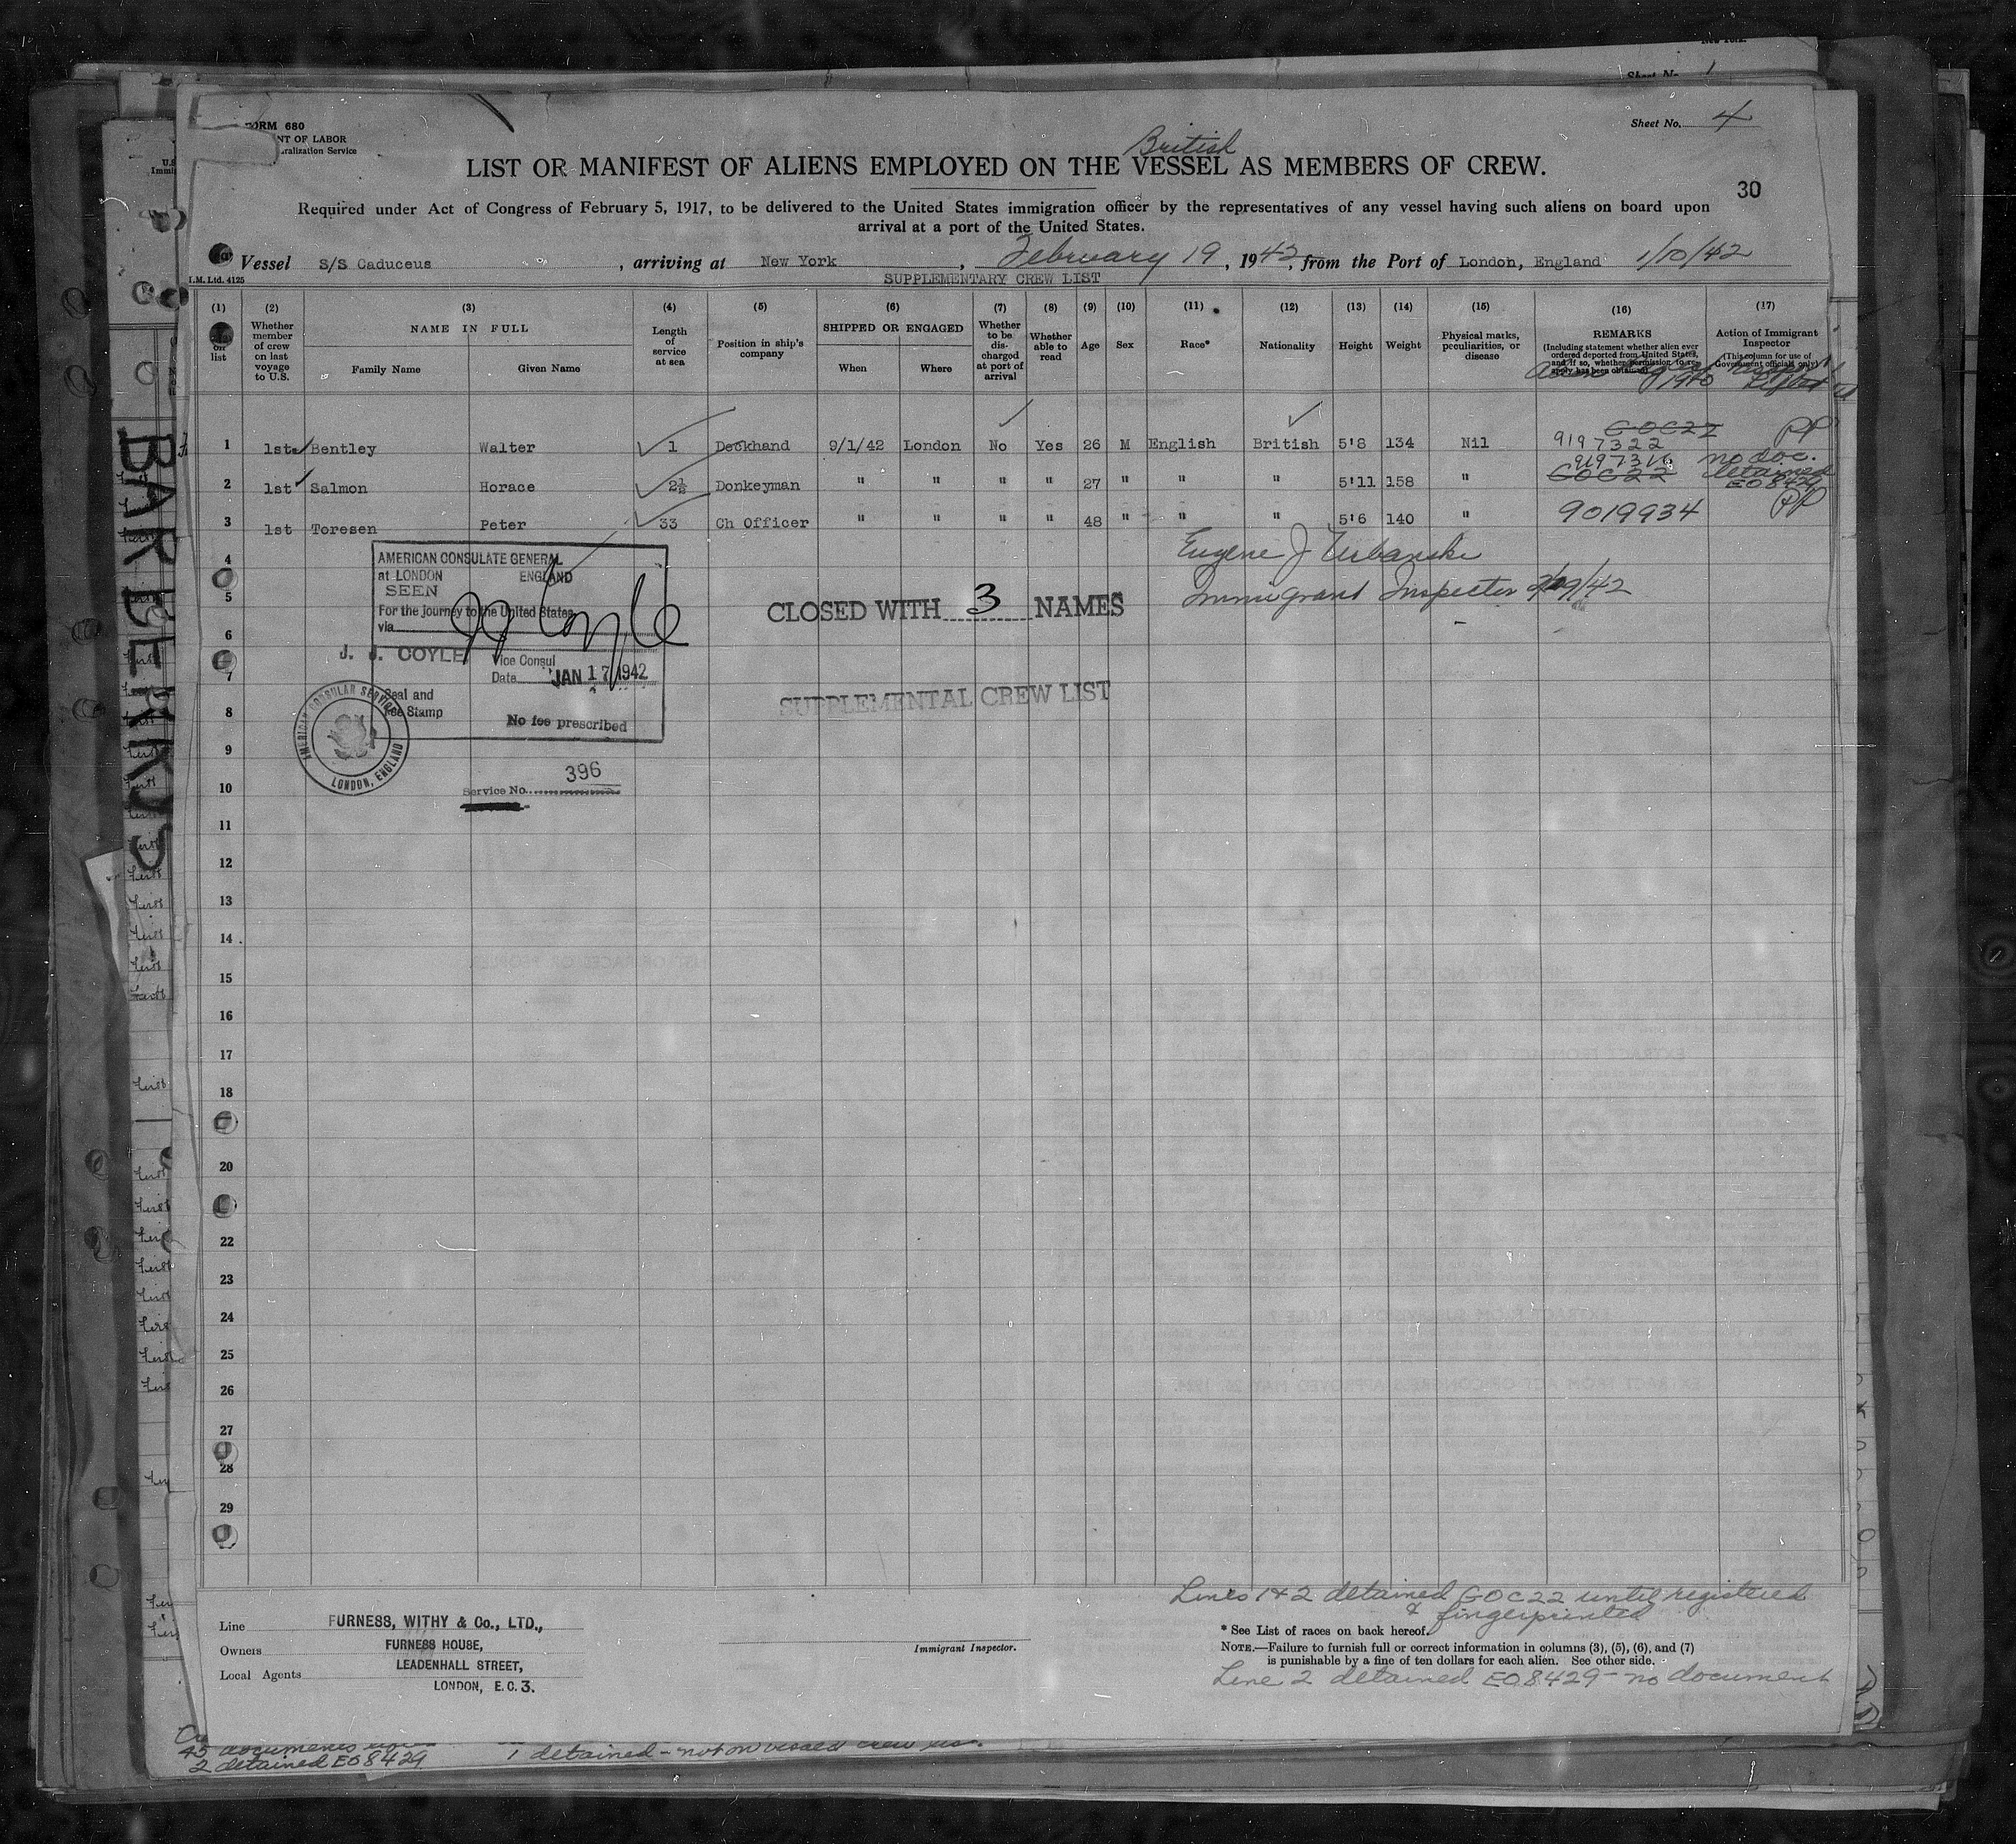 Sheet No. 1
FORM 680
NT OF LABOR
ralization Service
Sheet No. 4
British
LIST OR MANIFEST OF ALIENS EMPLOYED ON THE VESSEL AS MEMBERS OF CREW.
30
Required under Act of Congress of February 5, 1917, to be delivered to the United States immigration officer by the representatives of any vessel having such aliens on board upon
arrival at a port of the United States.
Vessel S/S Caduceus, arriving at New York, February 19, 1942, from the Port of London, England 1/10/42
I.M. Ltd. 4125
SUPPLEMENTARY CREW LIST
(1) (2) (3) (4) (5) (6) (7) (8) (9) (10) (11) (12) (13) (14) (15) (16) (17)
on list
Whether member of crew on last voyage to U.S.
NAME IN FULL
Family Name Given Name
Length of service at sea
Position in ship's company
SHIPPED OR ENGAGED
When Where
Whether to be discharged at port of arrival
Whether able to read
Age Sex Race* Nationality Height Weight
Physical marks, peculiarities, or disease
REMARKS
(Including statement whether alien ever ordered deported from United States, and if so, whether permission to reapply has been obtained)
Action of Immigrant Inspector
(This column for use of Government officials only)
1 1st Bentley Walter 1 Deckhand 9/1/42 London No Yes 26 M English British 5'8 134 Nil GOC22 9197322 PP
2 1st Salmon Horace 2½ Donkeyman " " " " 27 " " " 5'11 158 " 9197316 GOC22 no doc. detained EO8429
3 1st Toresen Peter 33 Ch Officer " " " " 48 " " " 5'6 140 " 9019934 PP
4
Eugene J Urbanski
5
Immigrant Inspector 2/19/42
AMERICAN CONSULATE GENERAL
at LONDON ENGLAND
SEEN
For the journey to the United States
via
J J Coyle
J. J. COYLE
Vice Consul
Date JAN 17 1942
Seal and
Fee Stamp
No fee prescribed
AMERICAN CONSULAR SERVICE
LONDON, ENGLAND
Service No. 396
CLOSED WITH 3 NAMES
SUPPLEMENTAL CREW LIST
6
7
8
9
10
11
12
13
14
15
16
17
18
20
22
23
24
25
26
27
28
29
BARBERKS
Lines 1 & 2 detained GOC22 until registered
& fingerprinted
Line FURNESS, WITHY & Co., LTD.,
Owners FURNESS HOUSE,
Local Agents LEADENHALL STREET,
LONDON, E.C.3.
Immigrant Inspector.
* See List of races on back hereof.
NOTE.—Failure to furnish full or correct information in columns (3), (5), (6), and (7)
is punishable by a fine of ten dollars for each alien. See other side.
Line 2 detained EO8429 - no document
45 documents
2 detained EO8429
1 detained - not on vessel crew